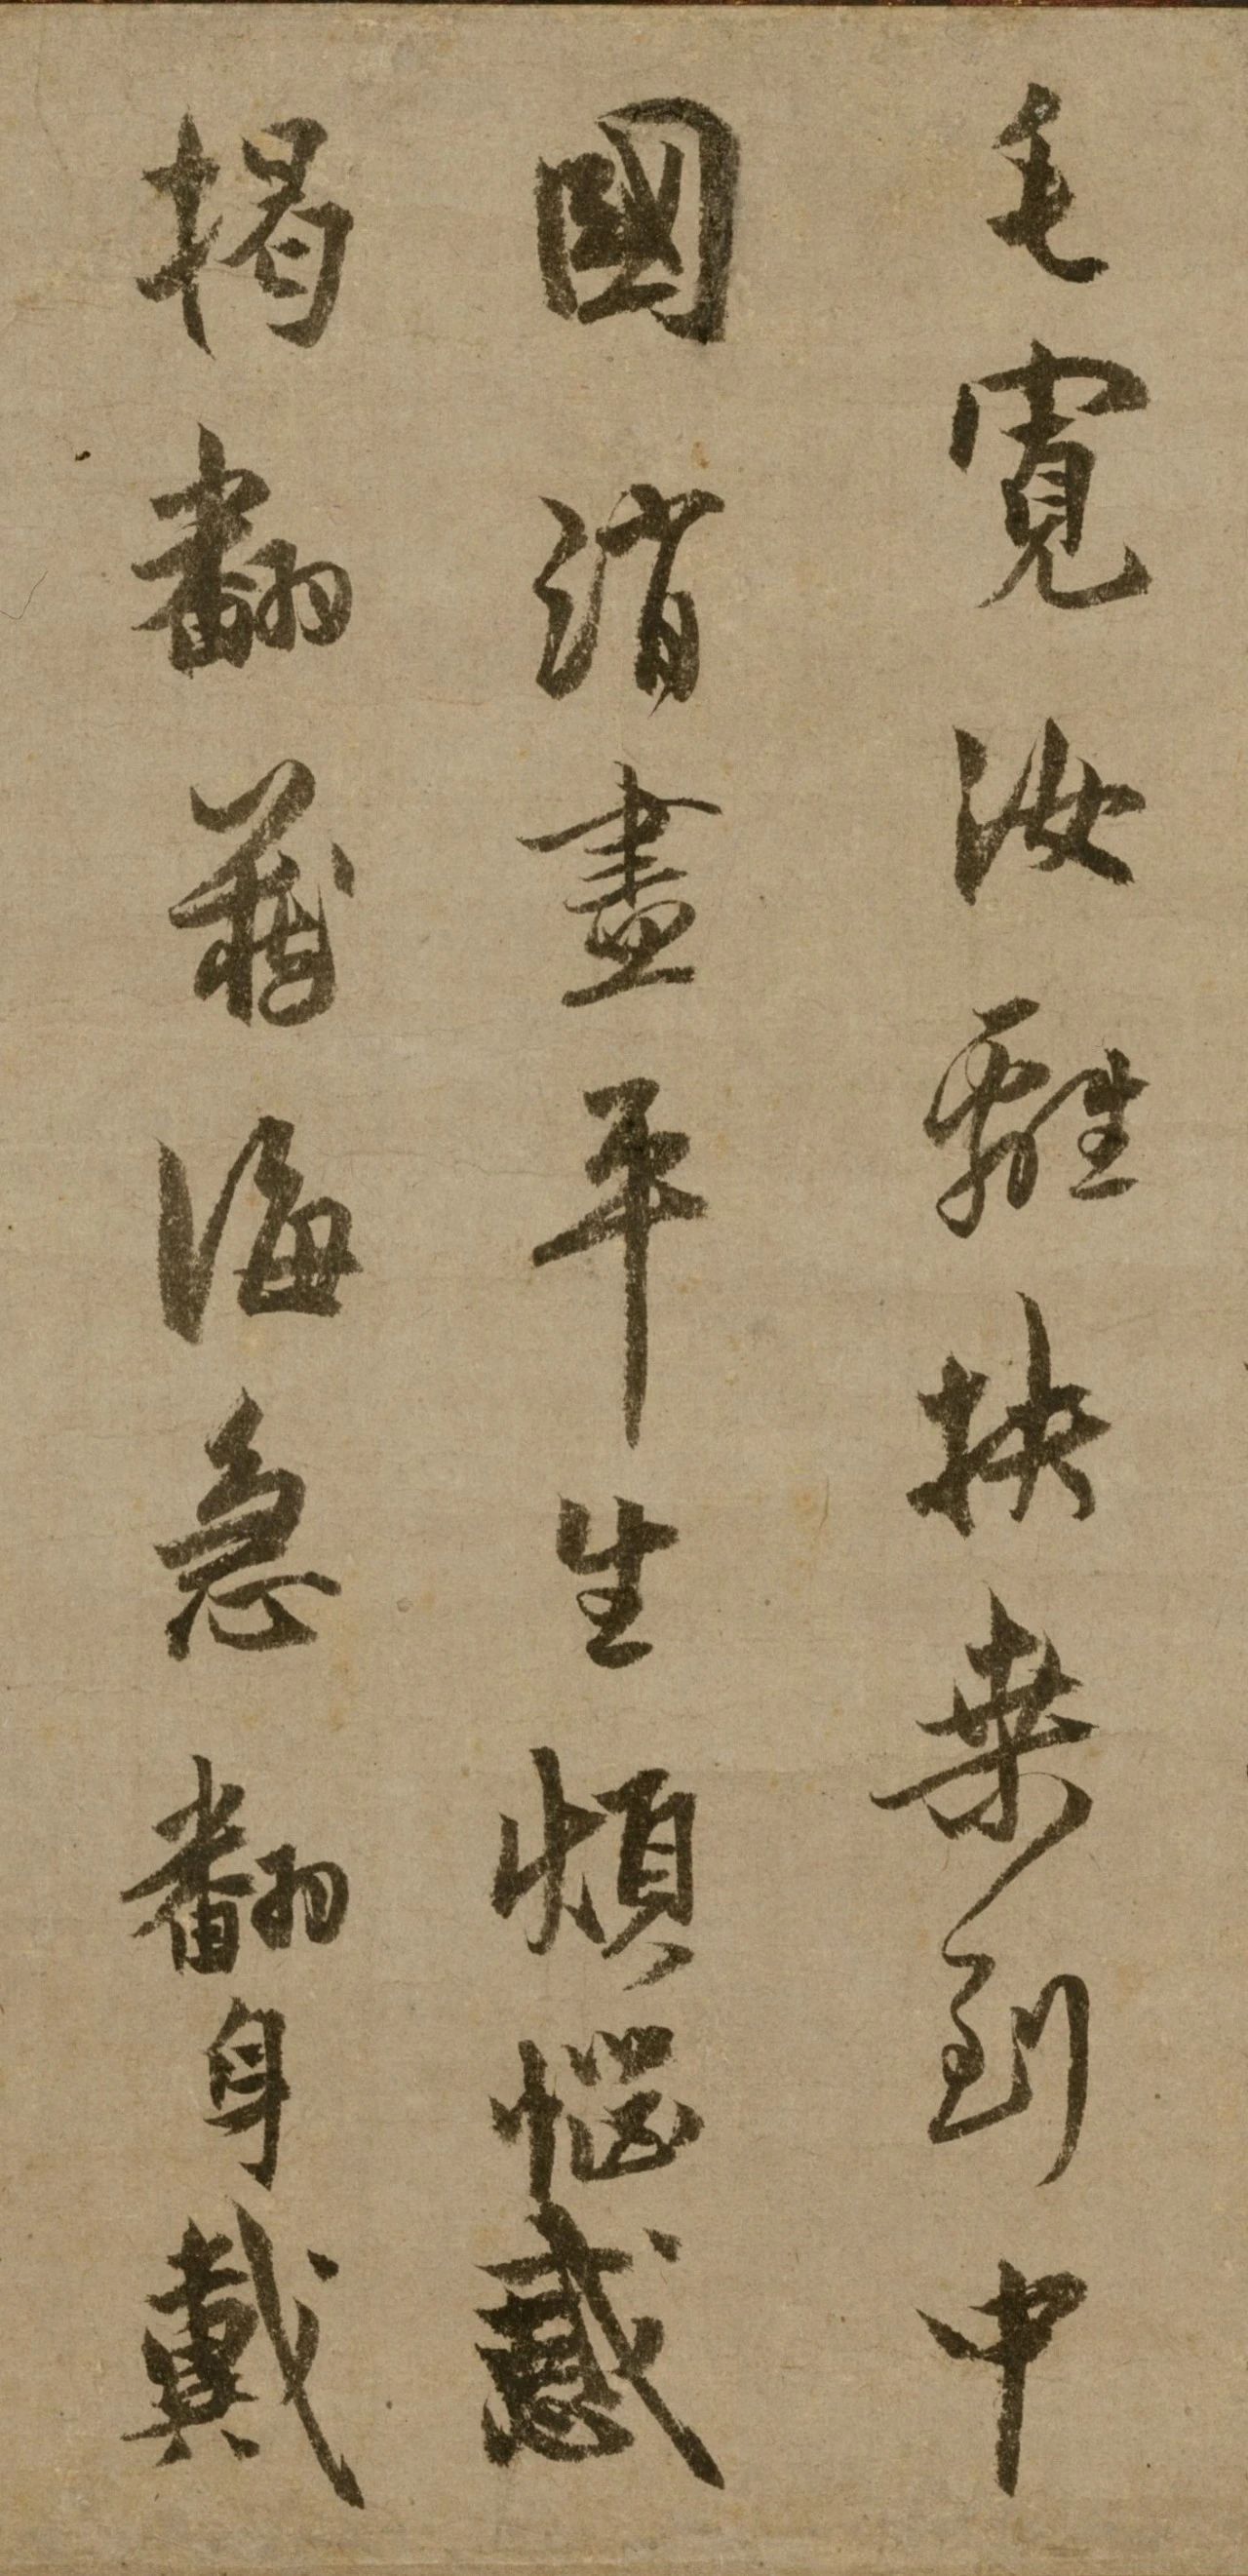 毛寬汝離扶桒到中
國消盡平生煩惱惑
揭翻藏海急翻身戴